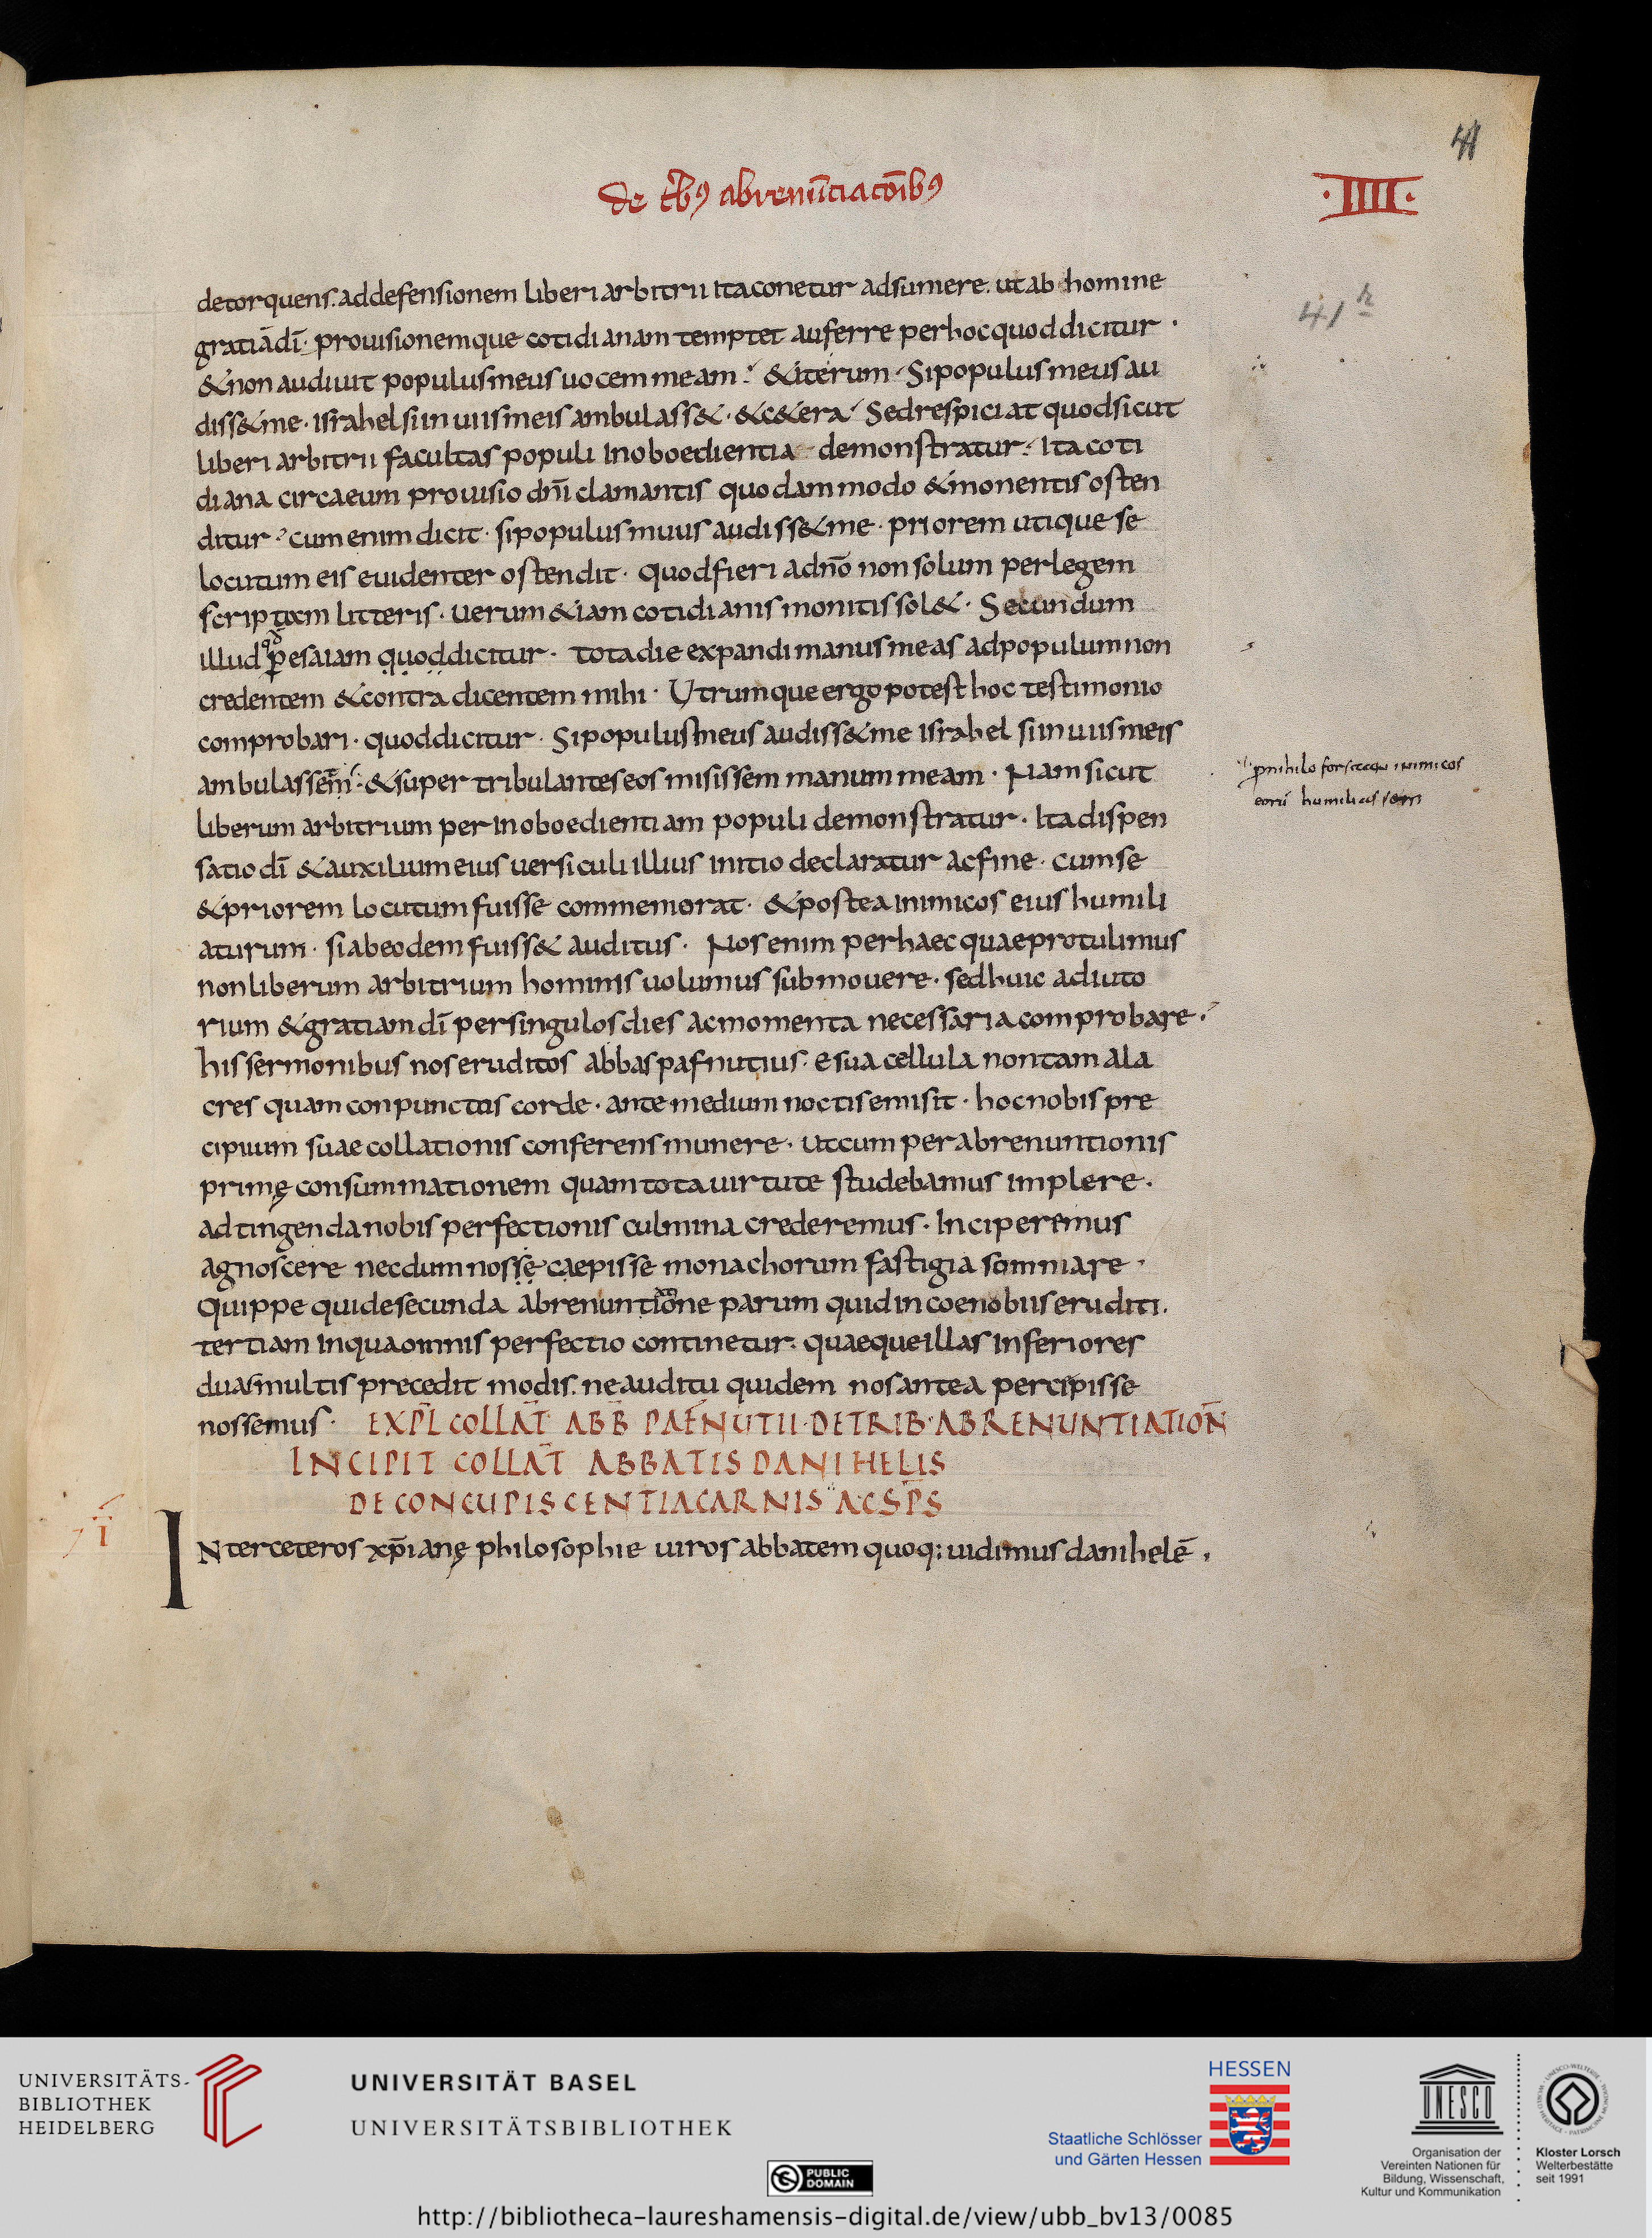 41
de t'bꝰ abrenū̄ciacōibꝰ
·IIII·
41r
detorquens. ad defensionem liberi arbitrii ita conetur adsumere. ut ab homine
gratiā dī· prouisionemque cotidianam temptet auferre per hoc quod dicitur ·
& non audiuit populus meus uocem meam. & iterum · Si populus meus au
diss& me · israhel si in uiis meis ambulass& · & c&era Sed respiciat quod sicut
liberi arbitrii facultas populi inoboedientia demonstratur. Ita coti
diana circa eum prouisio dn̄i clamantis quodammodo & monentis osten
ditur. cum enim dicit · si populus muus audiss& me · priorem utique se
locutum eis euidenter ostendit · quod fieri a dn̄o non solum per legem
litteris · uerum &iam cotidianis monitis sol& · Secundum
illud qd ꝑ esaiam quod dicitur · tota die expandi manus meas ad populum non
credentem & contra dicentem mihi · Utrumque ergo potest hoc testimonio
comprobari · quod dicitur · Si populus meus audiss& me israhel si in uiis meis
ambulassem · & super tribulantes eos misissem manum meam · Nam sicut
ꝓ nihilo forsitan inimicos
eorū humiliassem
liberum arbitrium per inoboedientiam populi demonstratur · Ita dispen
satio dī & auxilium eius uersiculi illius initio declaratur ac fine · cum se
& priorem locutum fuisse commemorat · & postea inimicos eius humili
aturum · si ab eodem fuiss& auditus · Nos enim per haec quae protulimus
non liberum arbitrium hominis uolumus submouere · sed huic adiuto
rium & gratiam dī per singulos dies ac momenta necessaria comprobare ·
his sermonibus nos eruditos abbas pafnutius · e sua cellula non tam ala
cres quam conpunctus corde · ante medium noctis emisit · hoc nobis pre
cipuum suae collationis conferens munere · ut cum per abrenuntionis
primę consummationem quam tota uirtute studebamus implere ·
adtingenda nobis perfectionis culmina crederemus · Inciperemus
agnoscere necdum nosse caepisse monachorum fastigia somniare ·
Quippe qui de secunda abrenuntione parum quid in coenobiis eruditi.
tertiam in qua omnis perfectio continetur · quaeque illas inferiores
duas multis precedit modis. ne auditu quidem nos antea percepisse
nossemus · EXPL̄ COLLAT̄ ABB̄ PAFNUTII · DE TRIB · ABRENUNTIATION̄
INCIPIT COLLAT̄ ABBATIS DANIHELIS
DE CONCUPISCENTIA CARNIS AC SP̄S
I
INter ceteros xp̄ianę philosophie uiros abbatem quoq; uidimus danihelē ·
UNIVERSITÄTS-
BIBLIOTHEK
HEIDELBERG
UNIVERSITÄT BASEL
UNIVERSITÄTSBIBLIOTHEK
PUBLIC
DOMAIN
HESSEN
Staatliche Schlösser
und Gärten Hessen
UNESCO
Organisation der
Vereinten Nationen für
Bildung, Wissenschaft,
Kultur und Kommunikation
Kloster Lorsch
Welterbestätte
seit 1991
http://bibliotheca-laureshamensis-digital.de/view/ubb_bv13/0085